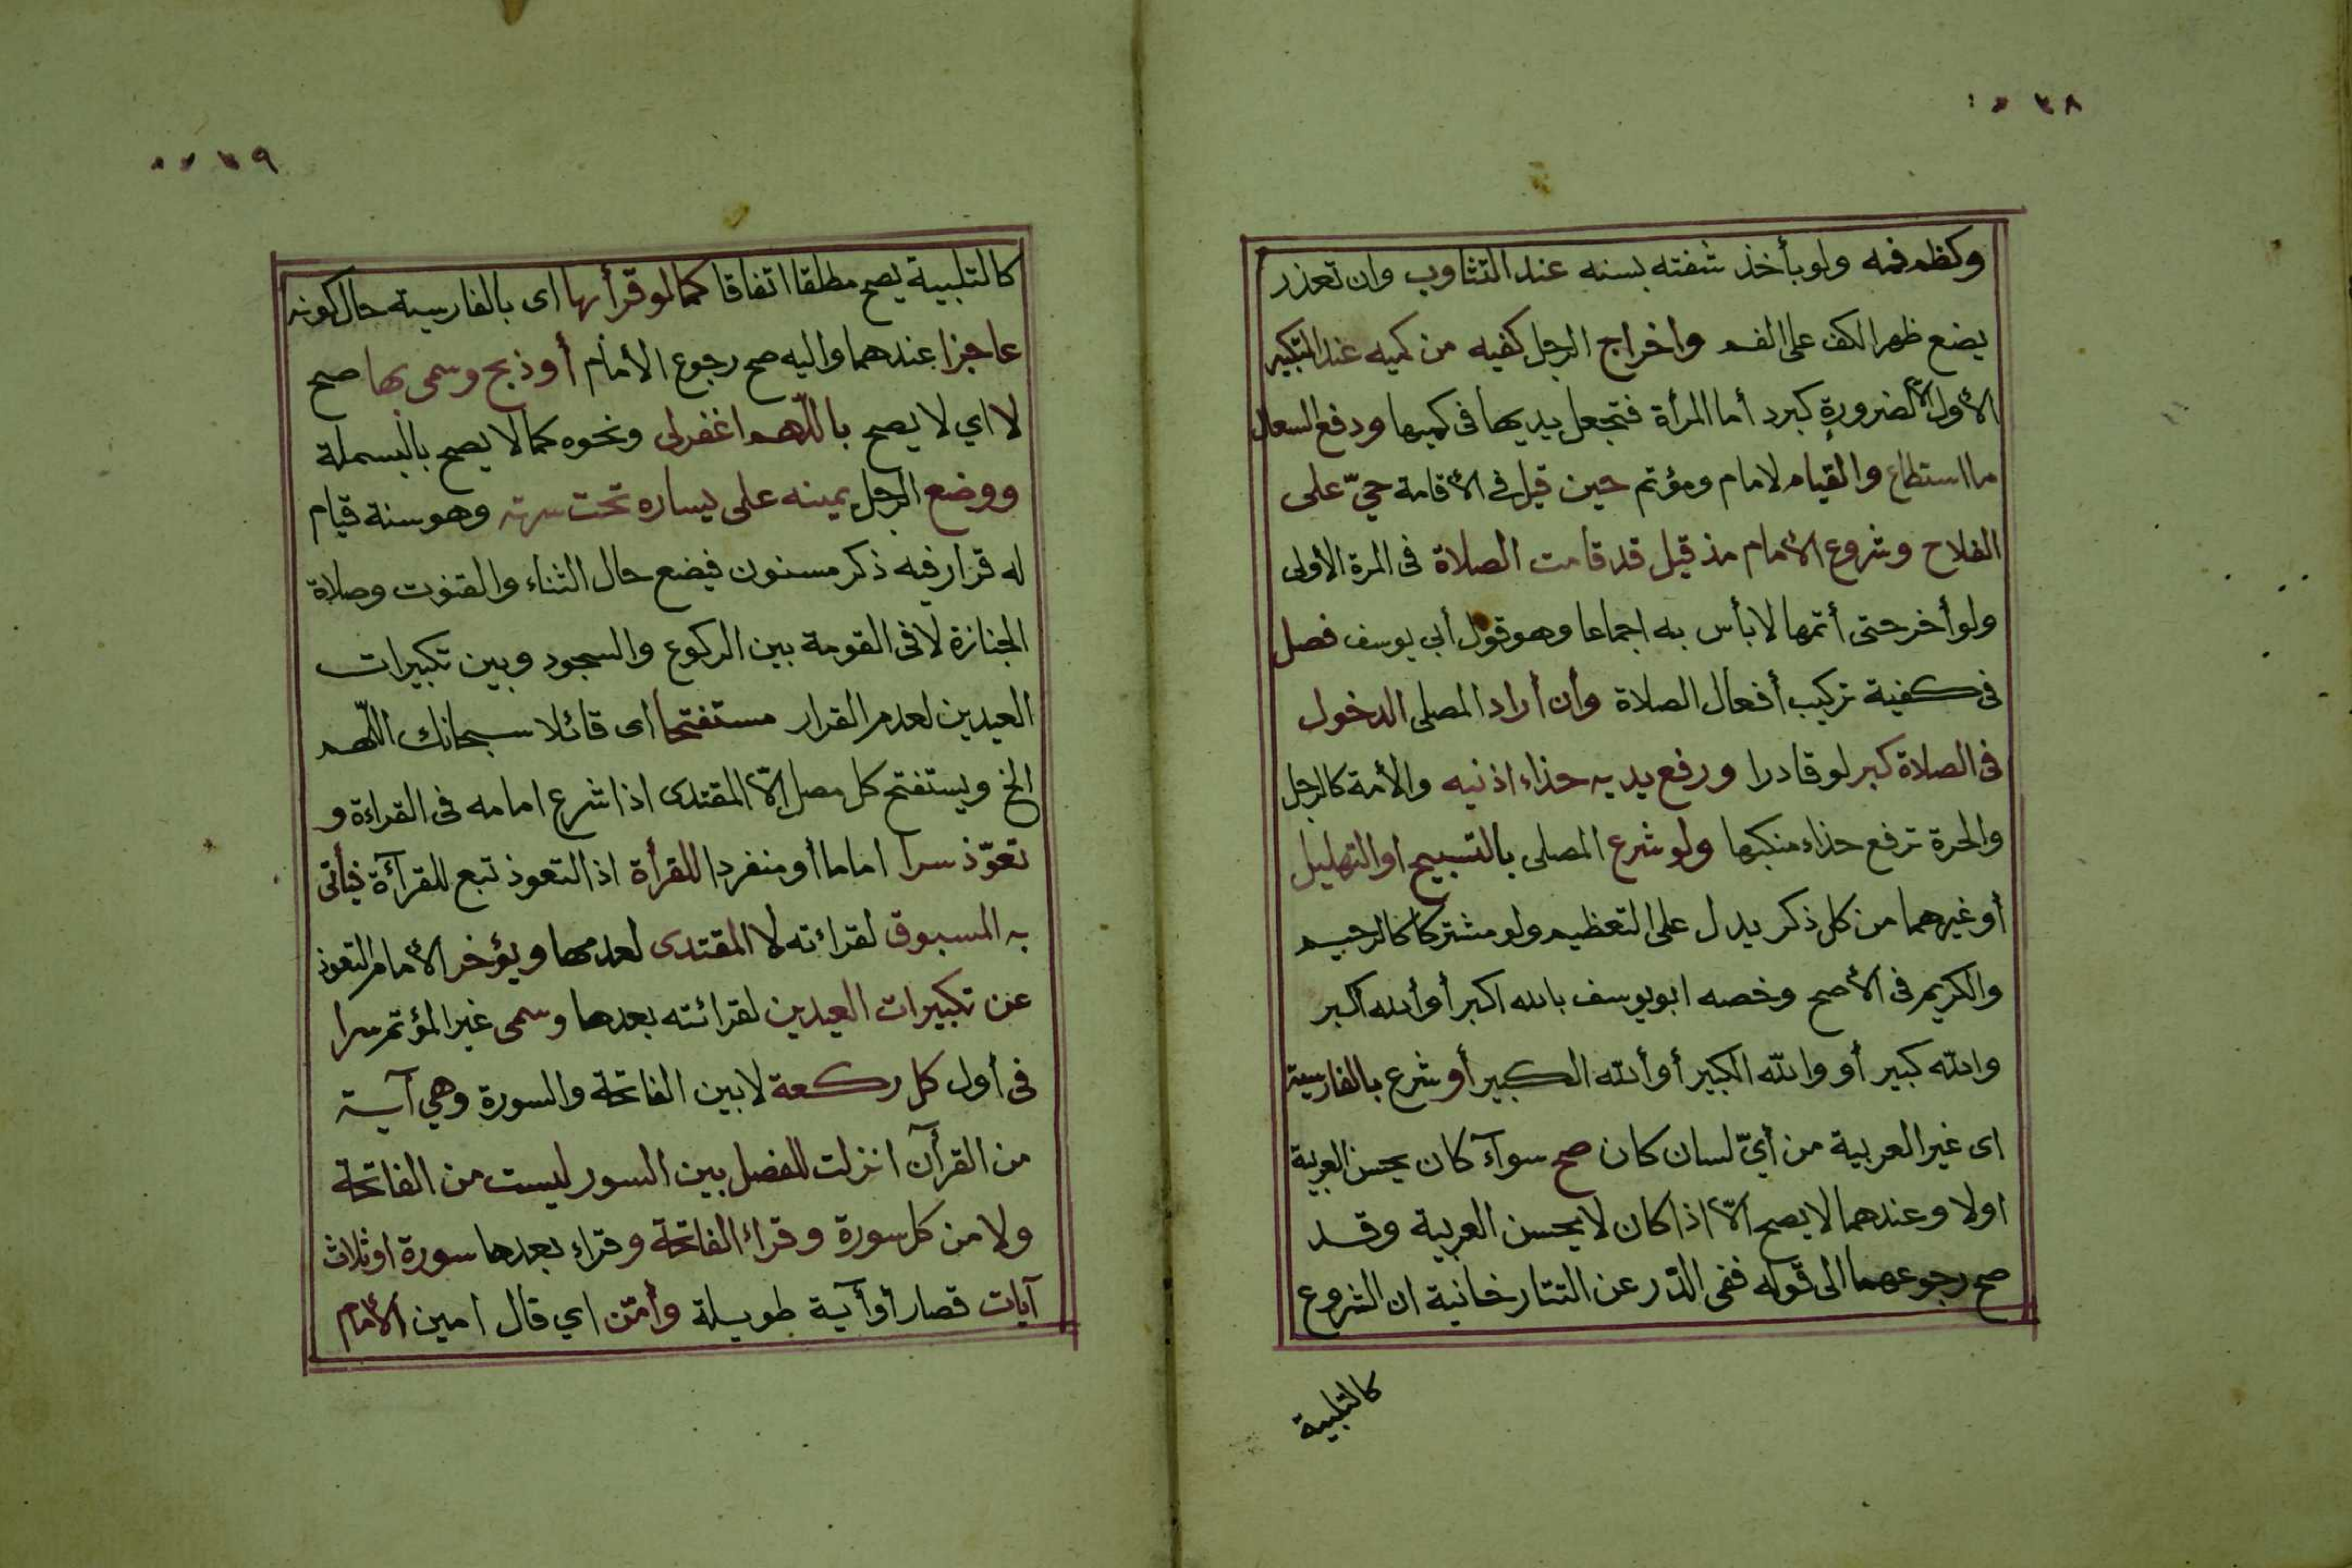 ٣٨
وكظم فمه ولو بأخذ شفته بسنه عند التثاوب وان تعذر
يضع ظهر الكف على الفم واخراج الرجل كفيه من كميه عند التكبير
الأول الا لضرورة كبرد أما المرأة فتجعل يديها فى كميها ودفع السعال
ما استطاع والقيام لامام ومؤتم حين قيل في الأقامة حيّ على
الفلاح وشروع الأمام مذ قيل قد قامت الصلاة فى المرة الأولى
ولو أخر حتى أتمها لا بأس به اجماعا وهو قول أبي يوسف فصل
فى كفية تركيب أفعال الصلاة وأن أراد المصلى الدخول
فى الصلاة كبر لو قادرا ورفع يديه حذاء اذنيه والأمة كالرجل
والحرة ترفع حذاء منكبها ولو شرع المصلى بالتسبيح او التهليل
أو غيرهما من كل ذكر يدل على التعظيم ولو مشتركا كالرحيم
والكريم فى الأصح وخصه ابو يوسف بالله اكبر أو ألله اكبر
والله كبير أو والله الكبير أو ألله الكبير أو شرع بالفارسية
اى غير العربية من أيّ لسان كان صح سوآء كان يحسن العربية
اولا وعندهما لا يصح الّا اذا كان لا يحسن العربية وقد
صح رجوعهما الى قوله ففى الدّر عن التتارخانية ان الشروع
كالتلبية
٣٩
كالتلبية يصح مطلقا اتفاقا كما لو قرأ بها اى بالفارسية حال كونه
عاجزا عندهما واليه صح رجوع الأمام أو ذبح وسمى بها صح
لا اي لا يصح باللّهم اغفرلى ونحوه كما لا يصح بالبسملة
ووضع الرجل يمينه على يساره تحت سرته وهو سنة قيام
له قرار فيه ذكر مسنون فيضع حال الثناء والقنوت وصلاة
الجنازة لا فى القومة بين الركوع والسجود وبين تكبيرات
العيدين لعدم القرار مستفتحا اى قائلا سبحانك اللّهم
الخ ويستفتح كل مصل الّا المقتدى اذا شرع امامه فى القراءة و
تعوّذ سرا اماما أو منفردا للقرأة اذ التعوذ تبع للقرآءة فيأتى
به المسبوق لقراءته لا المقتدى لعدمها ويؤخر الأمام التعوذ
عن تكبيرات العيدين لقرائته بعدها وسمى غير المؤتم سرا
فى أول كل ركعة لا بين الفاتحة والسورة وهي آية
من القرآن انزلت للفصل بين السور ليست من الفاتحة
ولا من كل سورة وقراء الفاتحة وقراء بعدها سورة او ثلاث
آيات قصار أو آية طويلة وأمّن اي قال امين الأمام